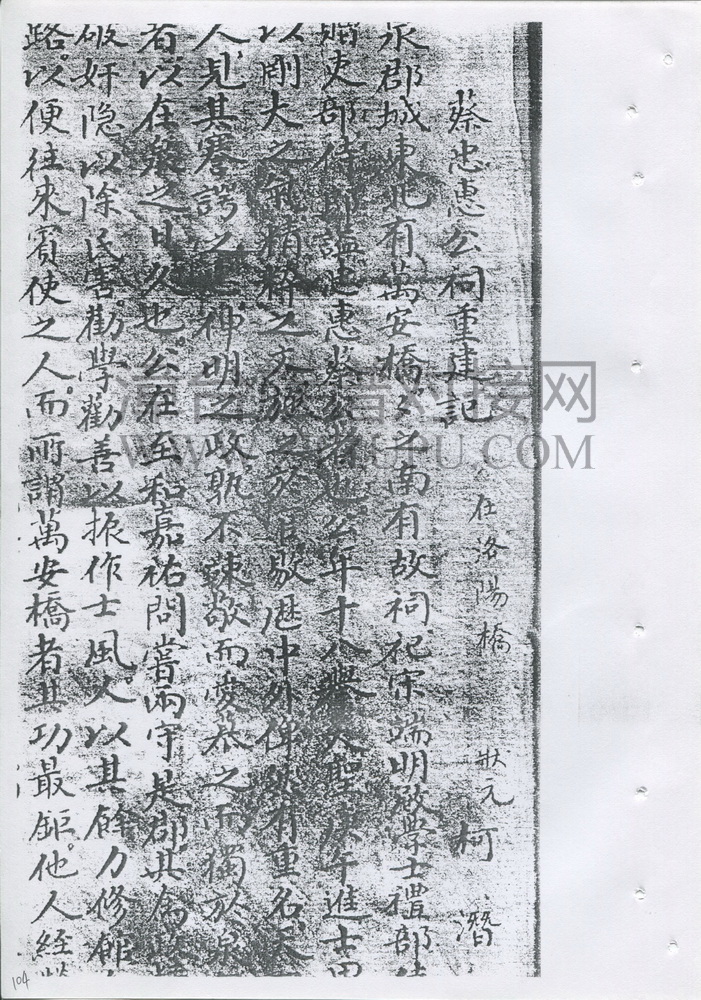 蔡忠惠公祠重建記 在洛陽橋 狀元 柯潛
泉郡城東北有萬安橋々之南有故祠祀宋端明殿學士禮部侍
贈吏部侍郎諡忠惠蔡公者也公年十八舉天聖庚午進士
以剛大之氣精粹之文施之於官敭歷中外俱有重名天
人見其謇諤之 神明之政孰不竦敬而愛慕之而獨於泉
者以在泉之日久也公在至和嘉祐間嘗兩守是郡其為政
破奸隐以除民害勸學勸善以振作士風人以其餘力修館
路以便往來賓使之人而所謂萬安橋者其功最鉅他人經
WWW. PU.COM
104